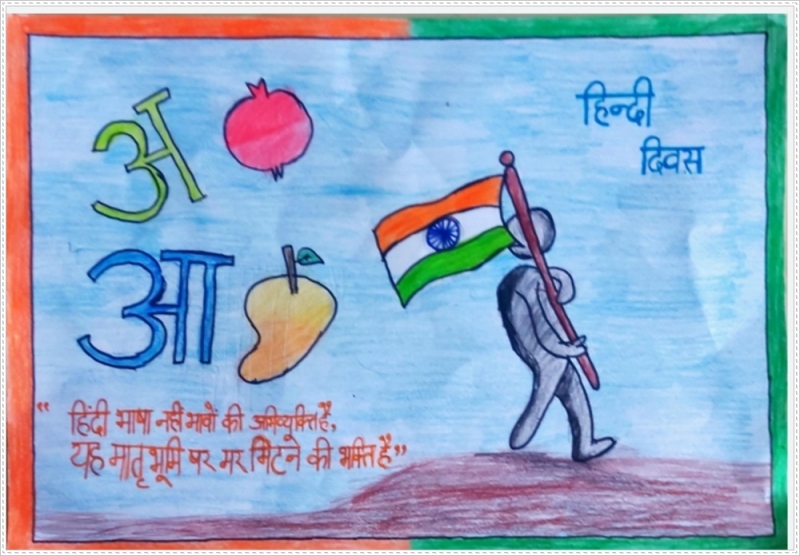 अ
हिन्दी
दिवस
आ
“हिंदी भाषा नहीं भावों की अभिव्यक्ति है,
यह मातृभूमि पर मर मिटने की भक्ति है”